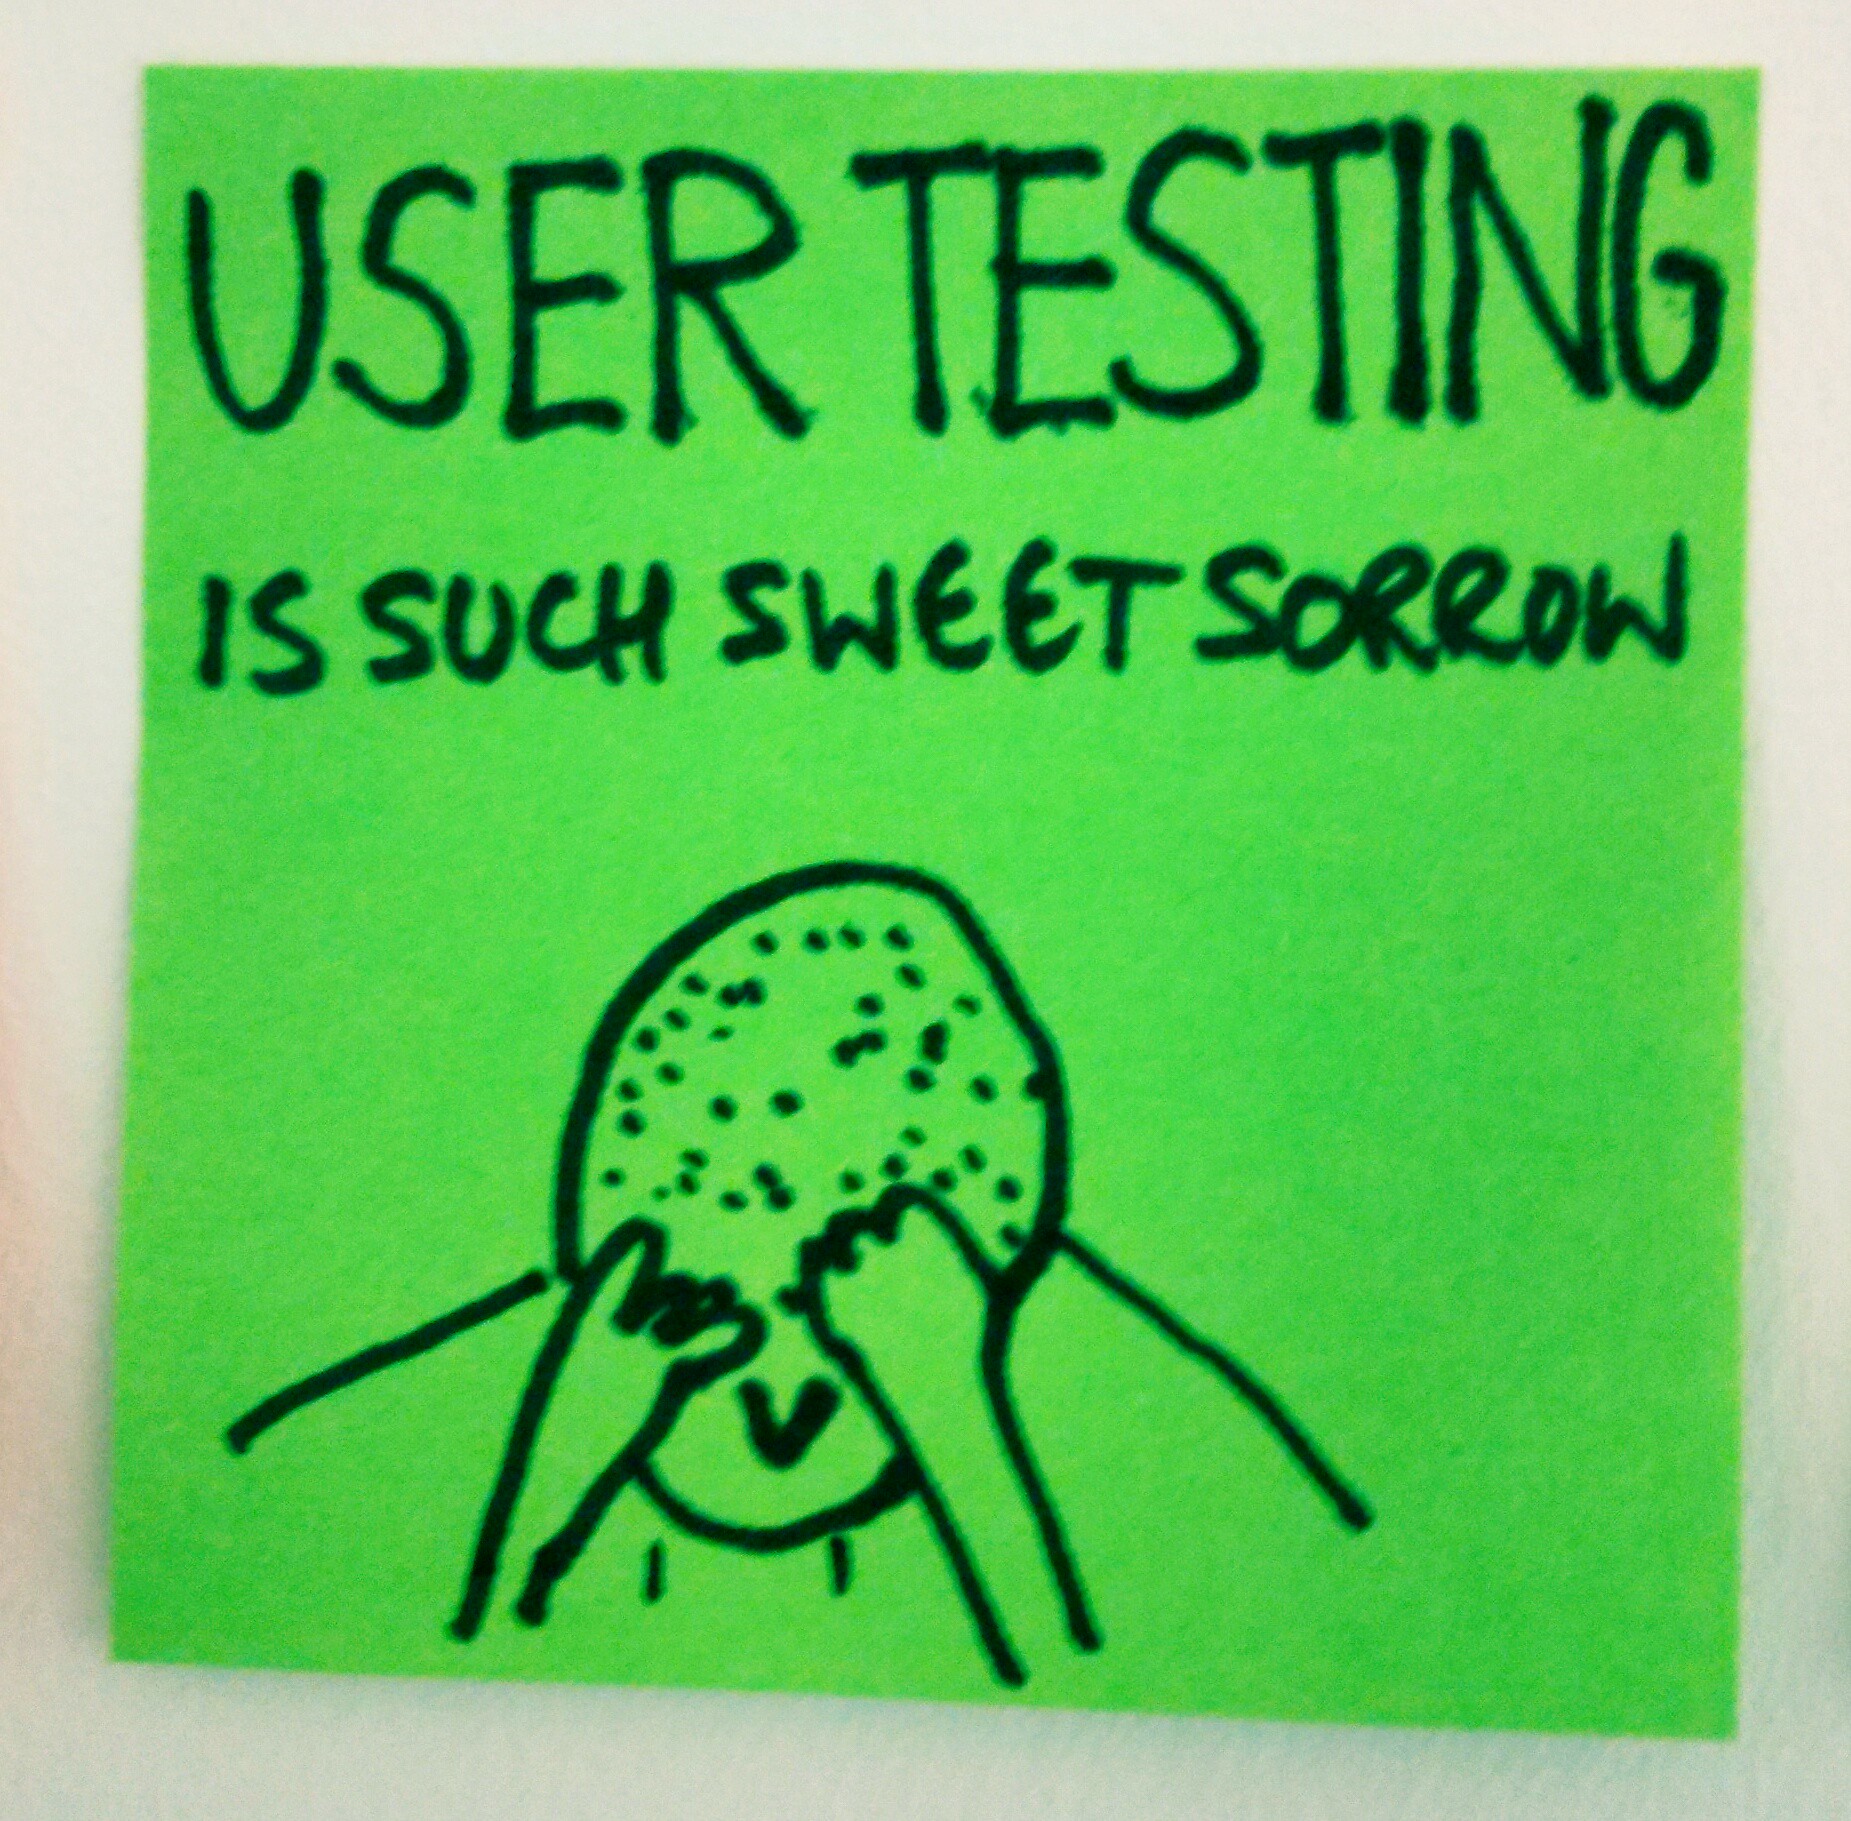 USER TESTING
IS SUCH SWEET SORROW